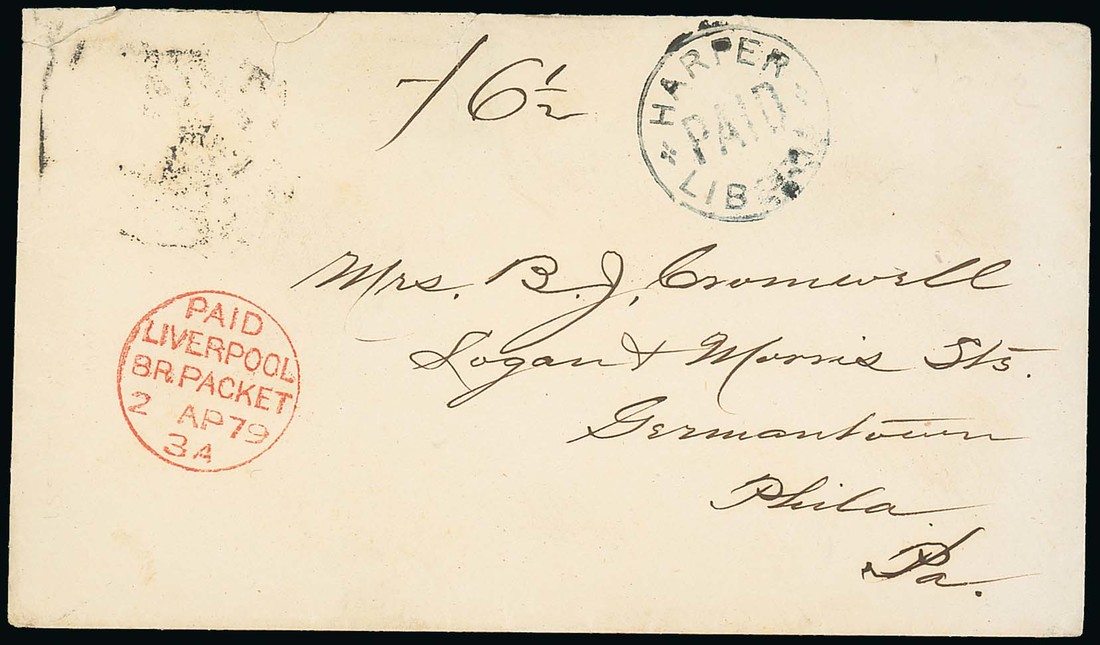 /6½
HARPER
PAID
LIBERIA
Mrs. B. J. Cromwell
Logan & Morris Sts.
Germantown
Phila
Pa.
PAID
LIVERPOOL
BR. PACKET
2 AP 79
3A